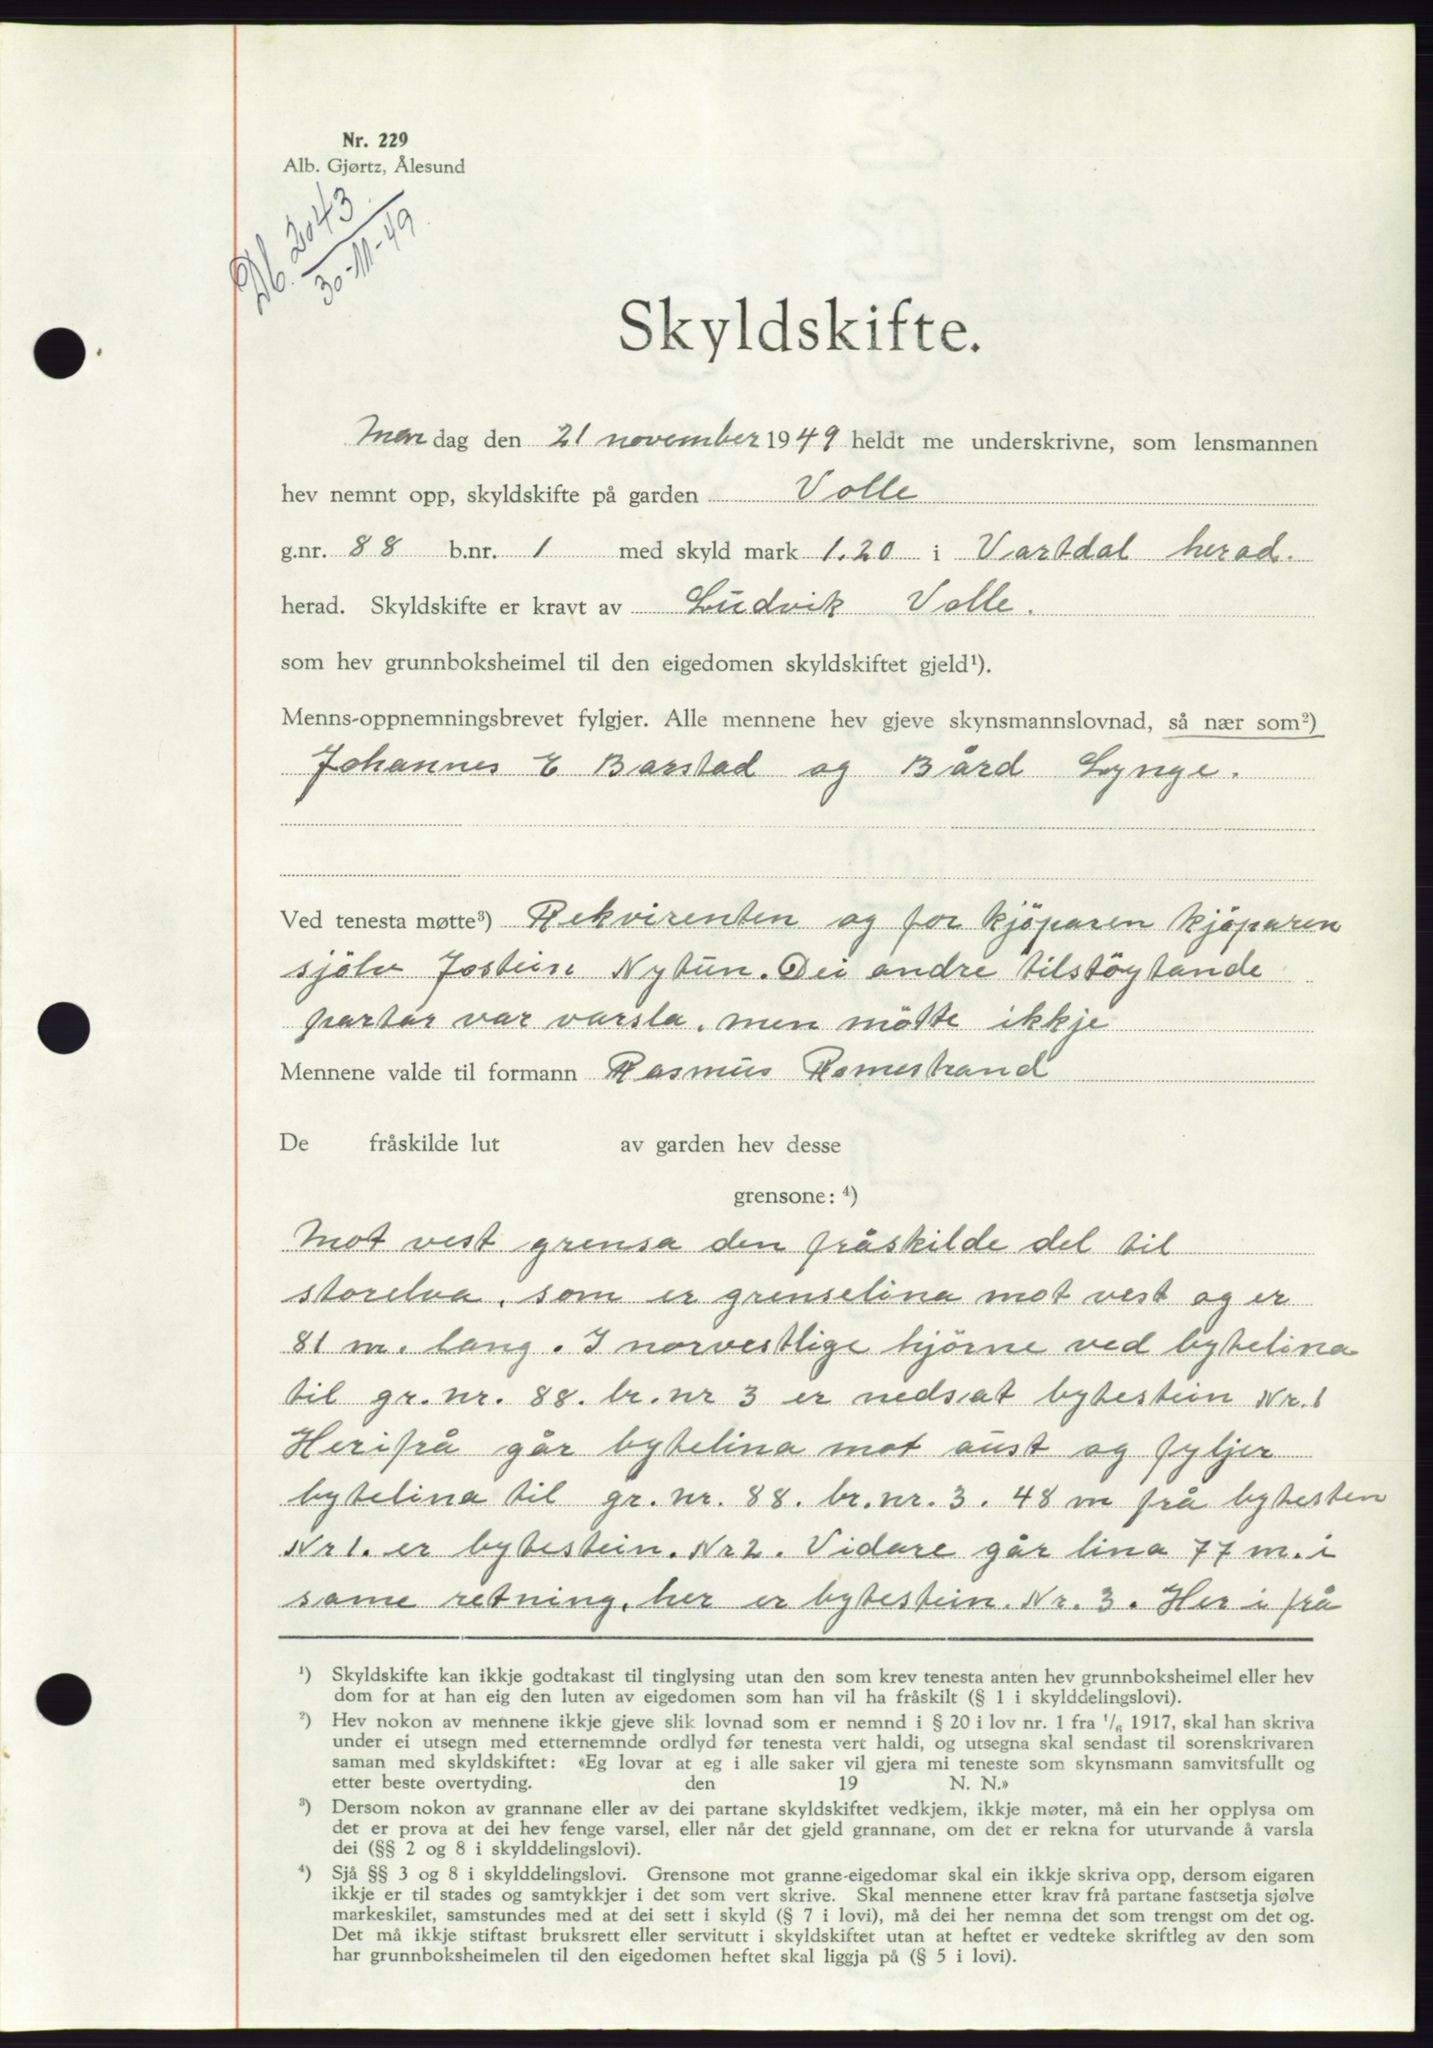 Nr. 229
Alb. Gjørtz, Ålesund
Db. 2043
30-11-49
Skyldskifte.
Mandag den 21 november 1949 heldt me underskrivne, som lensmannen
hev nemnt opp, skyldskifte på garden Volle
g.nr. 88 b.nr. 1 med skyld mark 1.20 i Vartdal herad.
herad. Skyldskifte er kravt av Ludvik Volle.
som hev grunnboksheimel til den eigedomen skyldskiftet gjeld¹).
Menns-oppnemningsbrevet fylgjer. Alle mennene hev gjeve skynsmannslovnad, så nær som²)
Johannes E Barstad og Bård Lynge.
Ved tenesta møtte³) Rekvirenten og for kjöparen kjöparen
sjölv Jostein Nytun. Dei andre tilstöytande
partar var varsla, men mötte ikkje
Mennene valde til formann Rasmus Romestrand
De fråskilde lut av garden hev desse
grensone: ⁴)
Mot vest grensa den fråskilde del til
storelva, som er grenselina mot vest og er
81 m. lang. I norvestlige hjörne ved bytelina
til gr. nr. 88. br. nr 3 er nedsat bytestein Nr. 1
Herifrå går bytelina mot aust og fyljer
bytelina til gr. nr. 88. br. nr. 3. 48 m frå bytesten
Nr 1. er bytestein. Nr 2. Vidare går lina 77 m. i
same retning, her er bytestein. Nr. 3. Her i frå
¹) Skyldskifte kan ikkje godtakast til tinglysing utan den som krev tenesta anten hev grunnboksheimel eller hev
dom for at han eig den luten av eigedomen som han vil ha fråskilt (§ 1 i skylddelingslovi).
²) Hev nokon av mennene ikkje gjeve slik lovnad som er nemnd i § 20 i lov nr. 1 fra ¹/₆ 1917, skal han skriva
under ei utsegn med etternemnde ordlyd før tenesta vert haldi, og utsegna skal sendast til sorenskrivaren
saman med skyldskiftet: «Eg lovar at eg i alle saker vil gjera mi teneste som skynsmann samvitsfullt og
etter beste overtyding. den 19 N. N.»
³) Dersom nokon av grannane eller av dei partane skyldskiftet vedkjem, ikkje møter, må ein her opplysa om
det er prova at dei hev fenge varsel, eller når det gjeld grannane, om det er rekna for uturvande å varsla
dei (§§ 2 og 8 i skylddelingslovi).
⁴) Sjå §§ 3 og 8 i skylddelingslovi. Grensone mot granne-eigedomar skal ein ikkje skriva opp, dersom eigaren
ikkje er til stades og samtykkjer i det som vert skrive. Skal mennene etter krav frå partane fastsetja sjølve
markeskilet, samstundes med at dei sett i skyld (§ 7 i lovi), må dei her nemna det som trengst om det og.
Det må ikkje stiftast bruksrett eller servitutt i skyldskiftet utan at heftet er vedteke skriftleg av den som
har grunnboksheimelen til den eigedomen heftet skal liggja på (§ 5 i lovi).